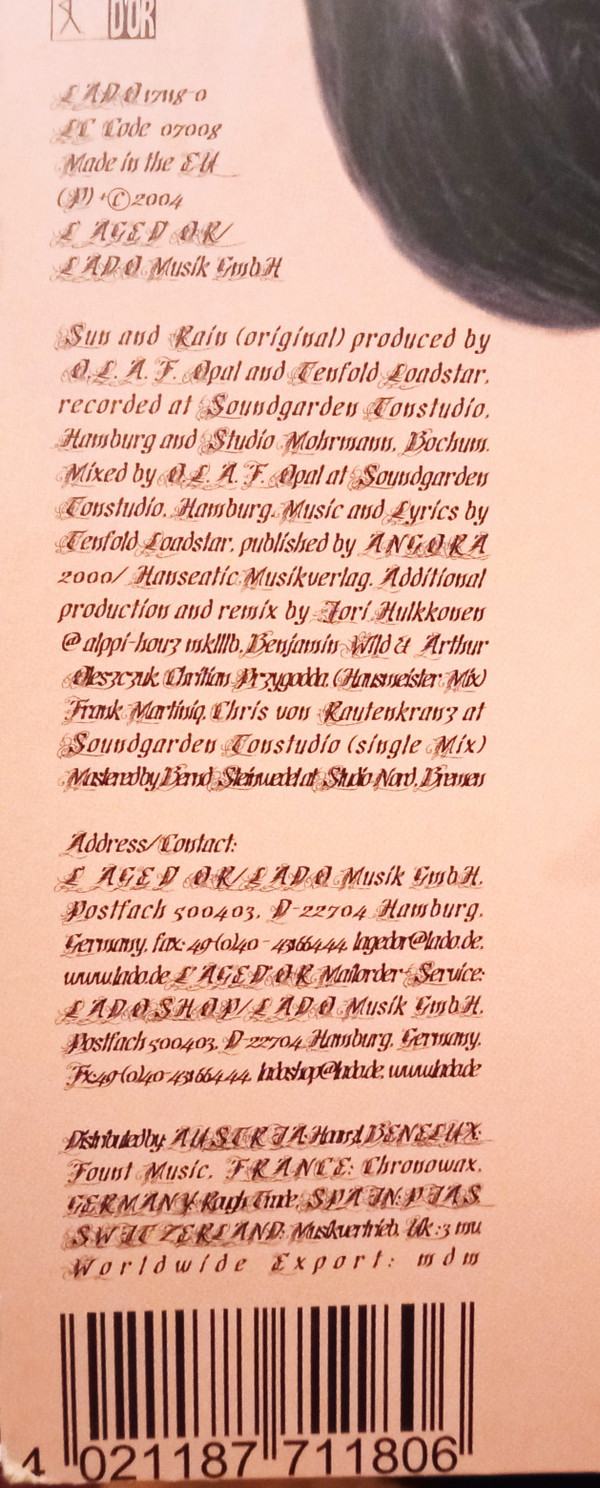 D'OR
LADO 17118-0
LC Code 07008
Made in the EU
(P) + © 2004
L AGE D OR/
LADO Musik GmbH
Sun and Rain (original) produced by
O.L. A. F. Opal and Tenfold Loadstar,
recorded at Soundgarden Tonstudio,
Hamburg and Studio Mohrmann, Bochum.
Mixed by O.L. A. F. Opal at Soundgarden
Tonstudio, Hamburg. Music and Lyrics by
Tenfold Loadstar, published by ANGORA
2000/ Hanseatic Musikverlag. Additional
production and remix by Jori Hulkkonen
@ alppi-hou3 mkIIIb, Benjamin Wild & Arthur
Oleszczuk, Chritian Przygodda, (Hausmeister Mix)
Frank Martiniq, Chris von Rautenkranz at
Soundgarden Tonstudio (single Mix)
Mastered by Bernd Steinwedel at Studio Nord, Bremen
Address/Contact:
L AGE D OR/LADO Musik GmbH,
Postfach 500403, D-22704 Hamburg,
Germany, fax: 49 (0)40 - 43166444 lagedor@lado.de,
www.lado.de L'AGE D'OR Mailorder-Service:
LADOSHOP/LADO Musik GmbH,
Postfach 500403, D-22704 Hamburg, Germany,
Fx:49 (0)40-43166444 ladoshop@lado.de, www.lado.de
Distributed by: AUSTRIA: BENELUX:
Fount Music, FRANCE: Chronowax,
GERMANY: Rough Trade, SPAIN: PIAS
SWITZERLAND: Musikvertrieb, Uk :3 mv
Worldwide Export: mdm
4 021187 711806